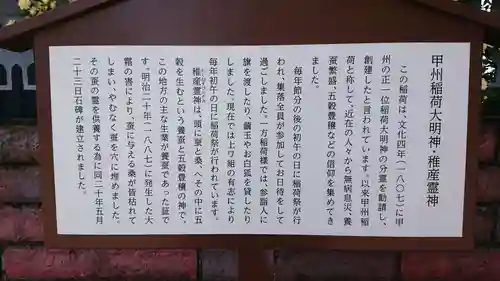 甲州稲荷大明神・稚産霊神
この稲荷は、文化四年(一八〇七)に甲
州の正一位稲荷大明神の分霊を勧請し、
創建したと言われています。以来甲州稲
荷と称して、近在の人々から無病息災、養
蚕繁盛、五穀豊穣などの信仰を集めてき
ました。
毎年節分の後の初午の日に稲荷祭が行
われ、集落全員が参加してお日待をして
過ごしました。一方稲荷様では、参詣人に
旗を渡したり、繭玉やお白狐を貸したり
しました。現在では上ワ組の有志により
毎年初午の日に稲荷祭が行われています。
稚産霊神は、頭に蚕と桑、へその中に五
穀を生むという養蚕と五穀豊穣の神で、
この地方の主な生業が養蚕であった証で
す。明治二十年(一八八七)に発生した大
霜の害により、蚕に与える桑が皆枯れて
しまい、やむなく蚕を穴に埋めました。
その蚕の霊を供養する為に同二十年五月
二十三日石碑が建立されました。